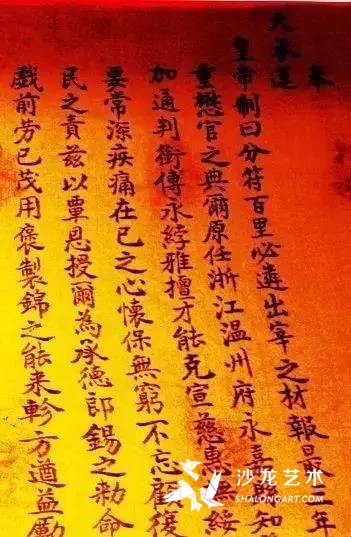 奉
天承運
皇帝制曰分符百里必遴出宰之材報最三年
重懋官之典爾原任浙江温州府永嘉縣知
加通判銜傅永綍雅擅才能克宣慈惠綏
要常深疾痛在已之心懷保無窮不忘顧復
民之責茲以覃恩授爾為承德郎錫之勅命
戲前芳已茂用褒製錦之能来軫方遒益勵
沙龙艺术
SHALONGART.COM